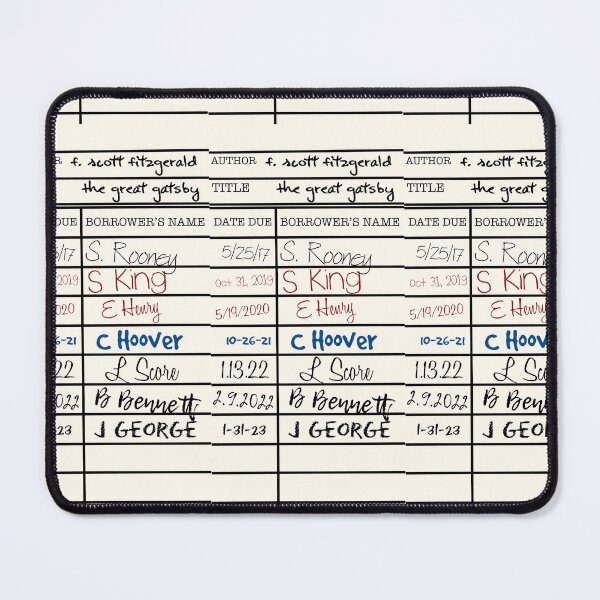 R f. scott fitzgerald AUTHOR f. scott fitzgerald AUTHOR f. scott fitz
the great gatsby TITLE the great gatsby TITLE the great g
DUE BORROWER'S NAME DATE DUE BORROWER'S NAME DATE DUE BORROWER
5/17 S. Rooney 5/25/17 S. Rooney 5/25/17 S. Roon
2019 S King oct 31, 2019 S King oct 31, 2019 S King
020 E Henry 5/19/2020 E Henry 5/19/2020 E Henry
6-21 C Hoover 10-26-21 C Hoover 10-26-21 C Hoov
.22 L Score 1.13.22 L Score 1.13.22 L Score
2022 B Bennett 2.9.2022 B Bennett 2.9.2022 B Benn
-23 J GEORGE 1-31-23 J GEORGE 1-31-23 J GEOR